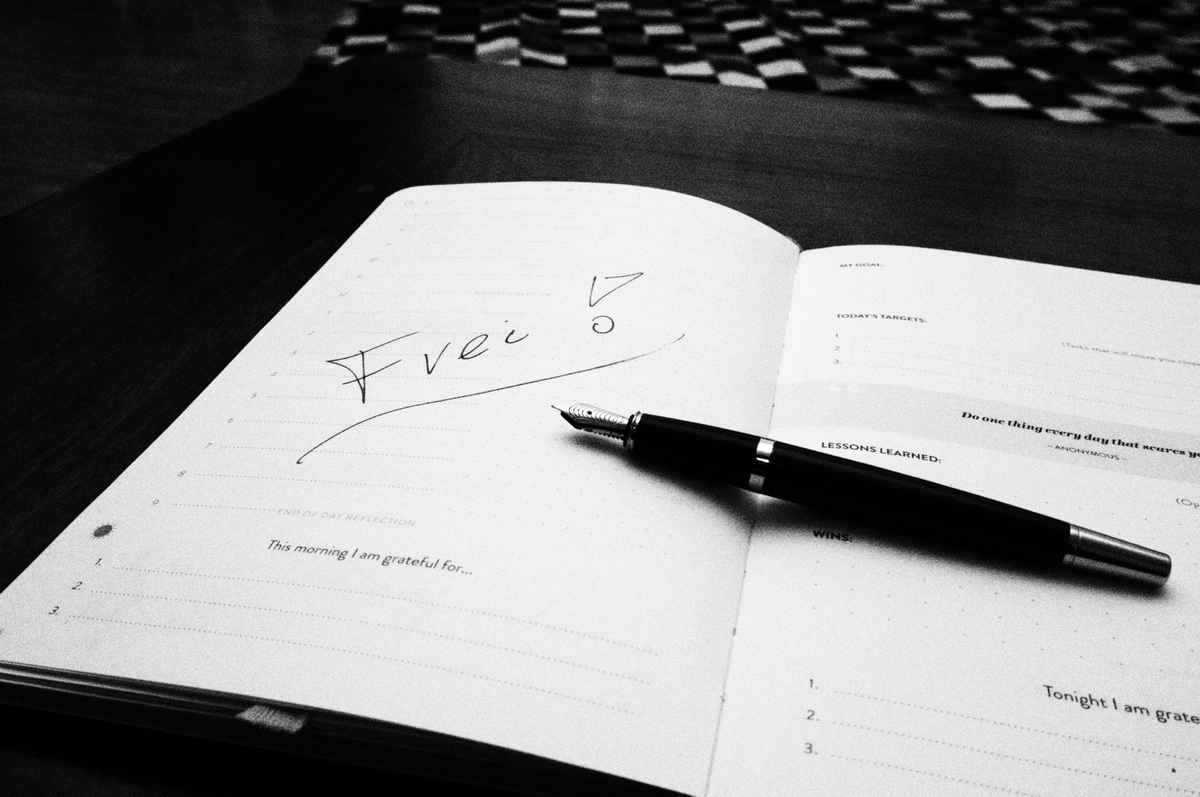 Frei!
5
6
7
8
9
END OF DAY REFLECTION
This morning I am grateful for...
1.
2.
3.
MY GOAL:
TODAY'S TARGETS:
1.
2.
3.
(Tasks that will make you
Do one thing every day that scares
~ ANONYMOUS ~
LESSONS LEARNED:
WINS:
Tonight I am
1.
2.
3.